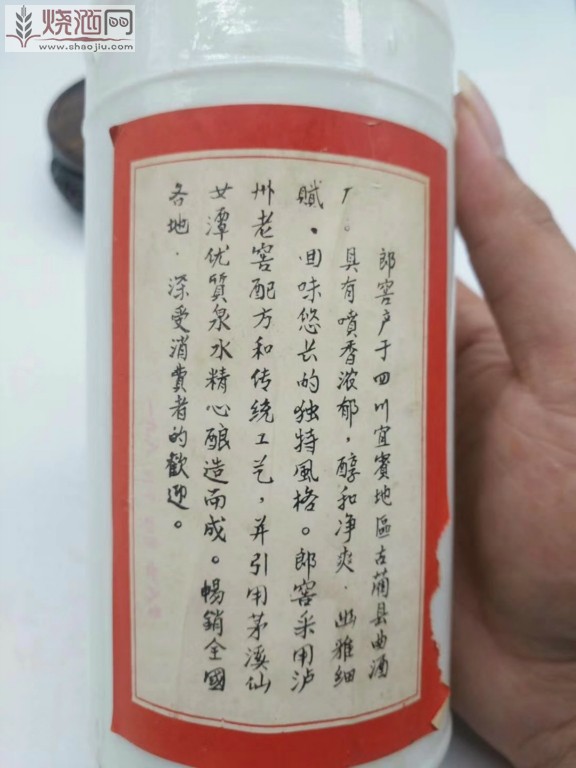 烧酒网
www.shaojiu.com
郎窖产于四川宜賓地區古藺县曲酒
厂。具有噴香浓郁，醇和净爽．幽雅细
膩．回味悠长的独特風格。郎窖采用泸
州老窖配方和传统工艺，并引用茅溪仙
女潭优質泉水精心酿造而成。暢銷全國
各地．深受消費者的歡迎。